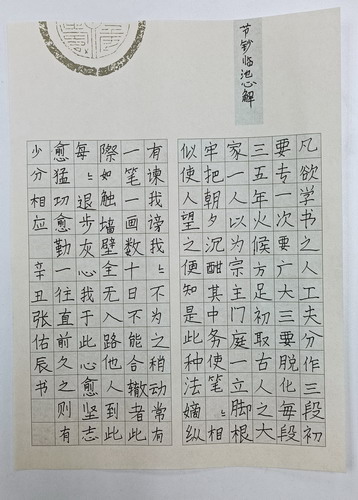 节钞临池心解
凡欲学书之人工夫分作三段初
要专一次要广大三要脱化每段
三五年火候方足初取古人之大
家一人以为宗主门庭一立脚根
牢把朝夕沉酣其中务使笔〻相
似使人望之便知是此种法嫡纵
有谏我谤我不为之稍动常有
一笔一画数十日不能合辙者此
際如触墙壁全无入路他人到此
每〻退步灰心我于此心愈坚志
愈猛功愈勤一往直前久之则有
少分相应 辛丑张佑辰书